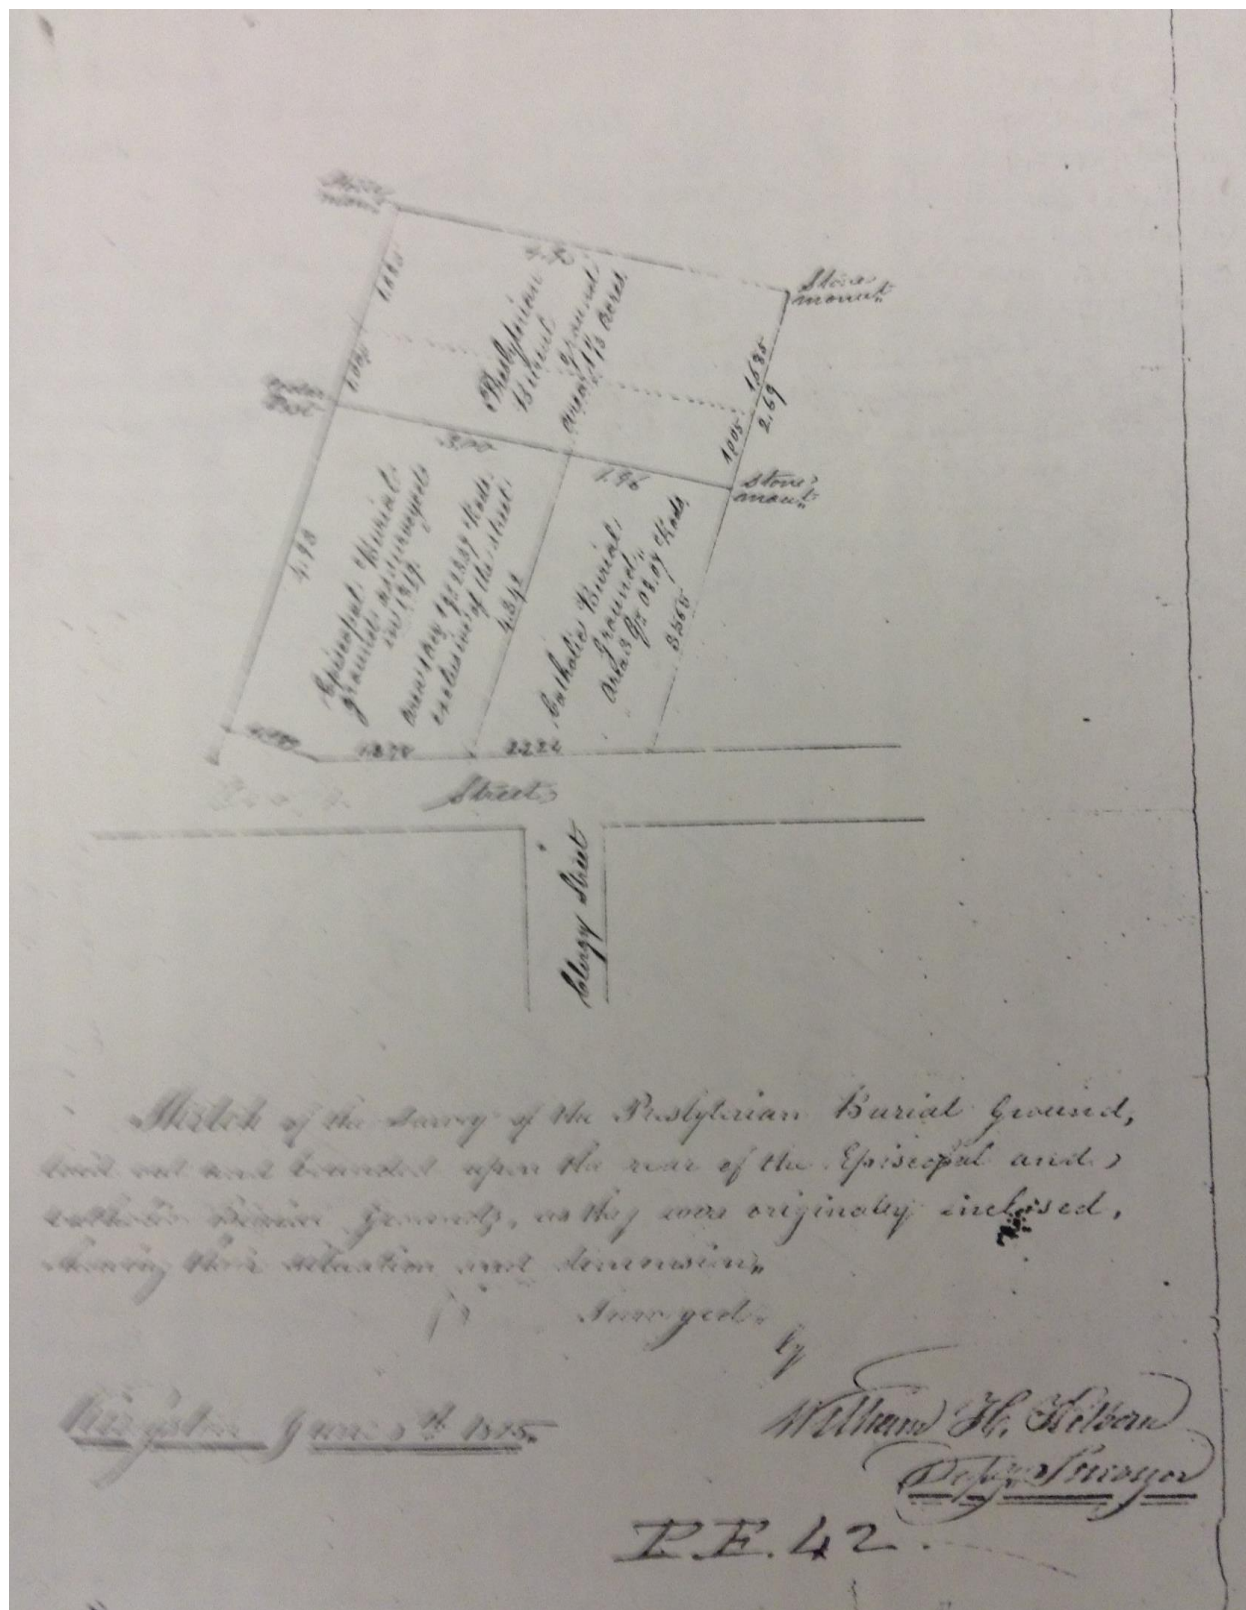 Stone
monut
4.90
Stone
monut
Presbyterian
Burial
ground
area 1 3/13 Acres
1.685
1.005
1.685
2.69
1.005
Cedar
Post
3.00
1.96
Stone
monut
4.98
Episcopal Burial
ground as surveyed
in 1819.
exclusive of the street
4.342
Catholic Burial
Ground
3.565
1.870
2.222
Street
Clergy Street
Sketch of the Survey of the Presbyterian Burial Ground,
laid out and bounded upon the rear of the Episcopal and
Catholic Burial Grounds, as they were originally inclosed,
shewing their situation and dimensions
Surveyed
by
Kingston June 1825
William H. Kilborn
Depy. Surveyor
P.F. 42.